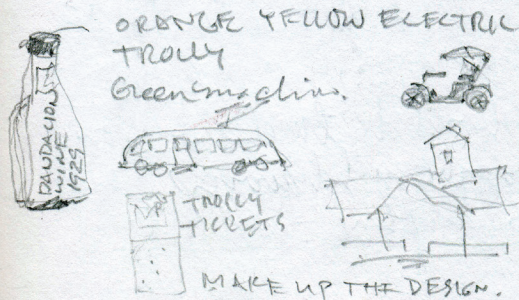 ORANGE YELLOW ELECTRIC
TROLLY
Green machine.
DANDALION
WINE
1929
TROLLY
TICKETS
MAKE UP THE DESIGN.